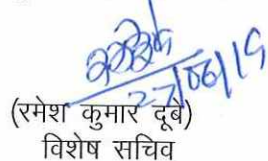 27/06/19
(रमेश कुमार दूबे)
विशेष सचिव